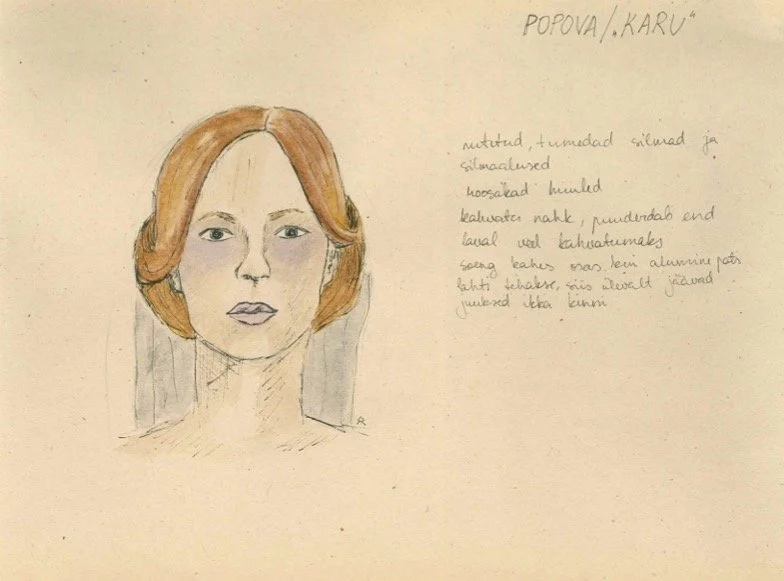 POPOVA/„KARU"
nutetud, tumedad silmad ja
silmaalused
roosakad huuled
kahvatu nahk, puuderdab end
laval veel kahvatumaks
soeng kahes osas. kui alumine pats
lahti tehakse, siis ülevalt jäävad
juuksed ikka kinni
A.